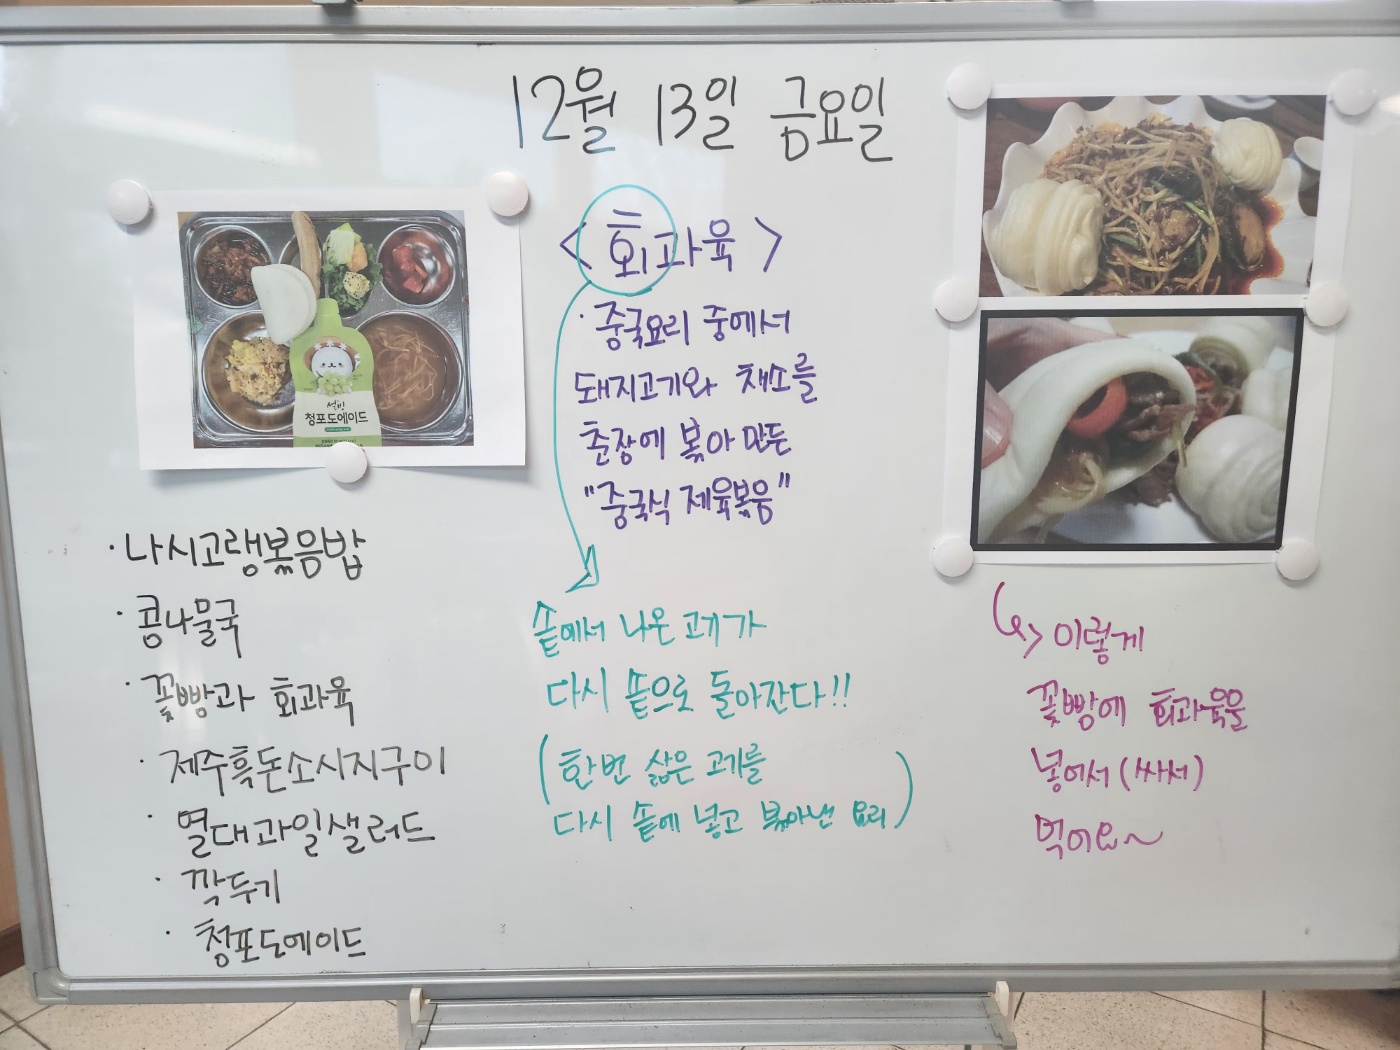 12월 13일 금요일
설빙
청포도에이드
· 나시고랭볶음밥
· 콩나물국
· 꽃빵과 회과육
· 제주흑돈소시지구이
· 열대과일샐러드
· 깍두기
· 청포도에이드
< 회과육 >
· 중국요리 중에서
돼지고기와 채소를
춘장에 볶아 만든
"중국식 제육볶음"
솥에서 나온 고기가
다시 솥으로 돌아간다!!
(한번 삶은 고기를
다시 솥에 넣고 볶아낸 요리)
이렇게
꽃빵에 회과육을
넣어서 (싸서)
먹어요~